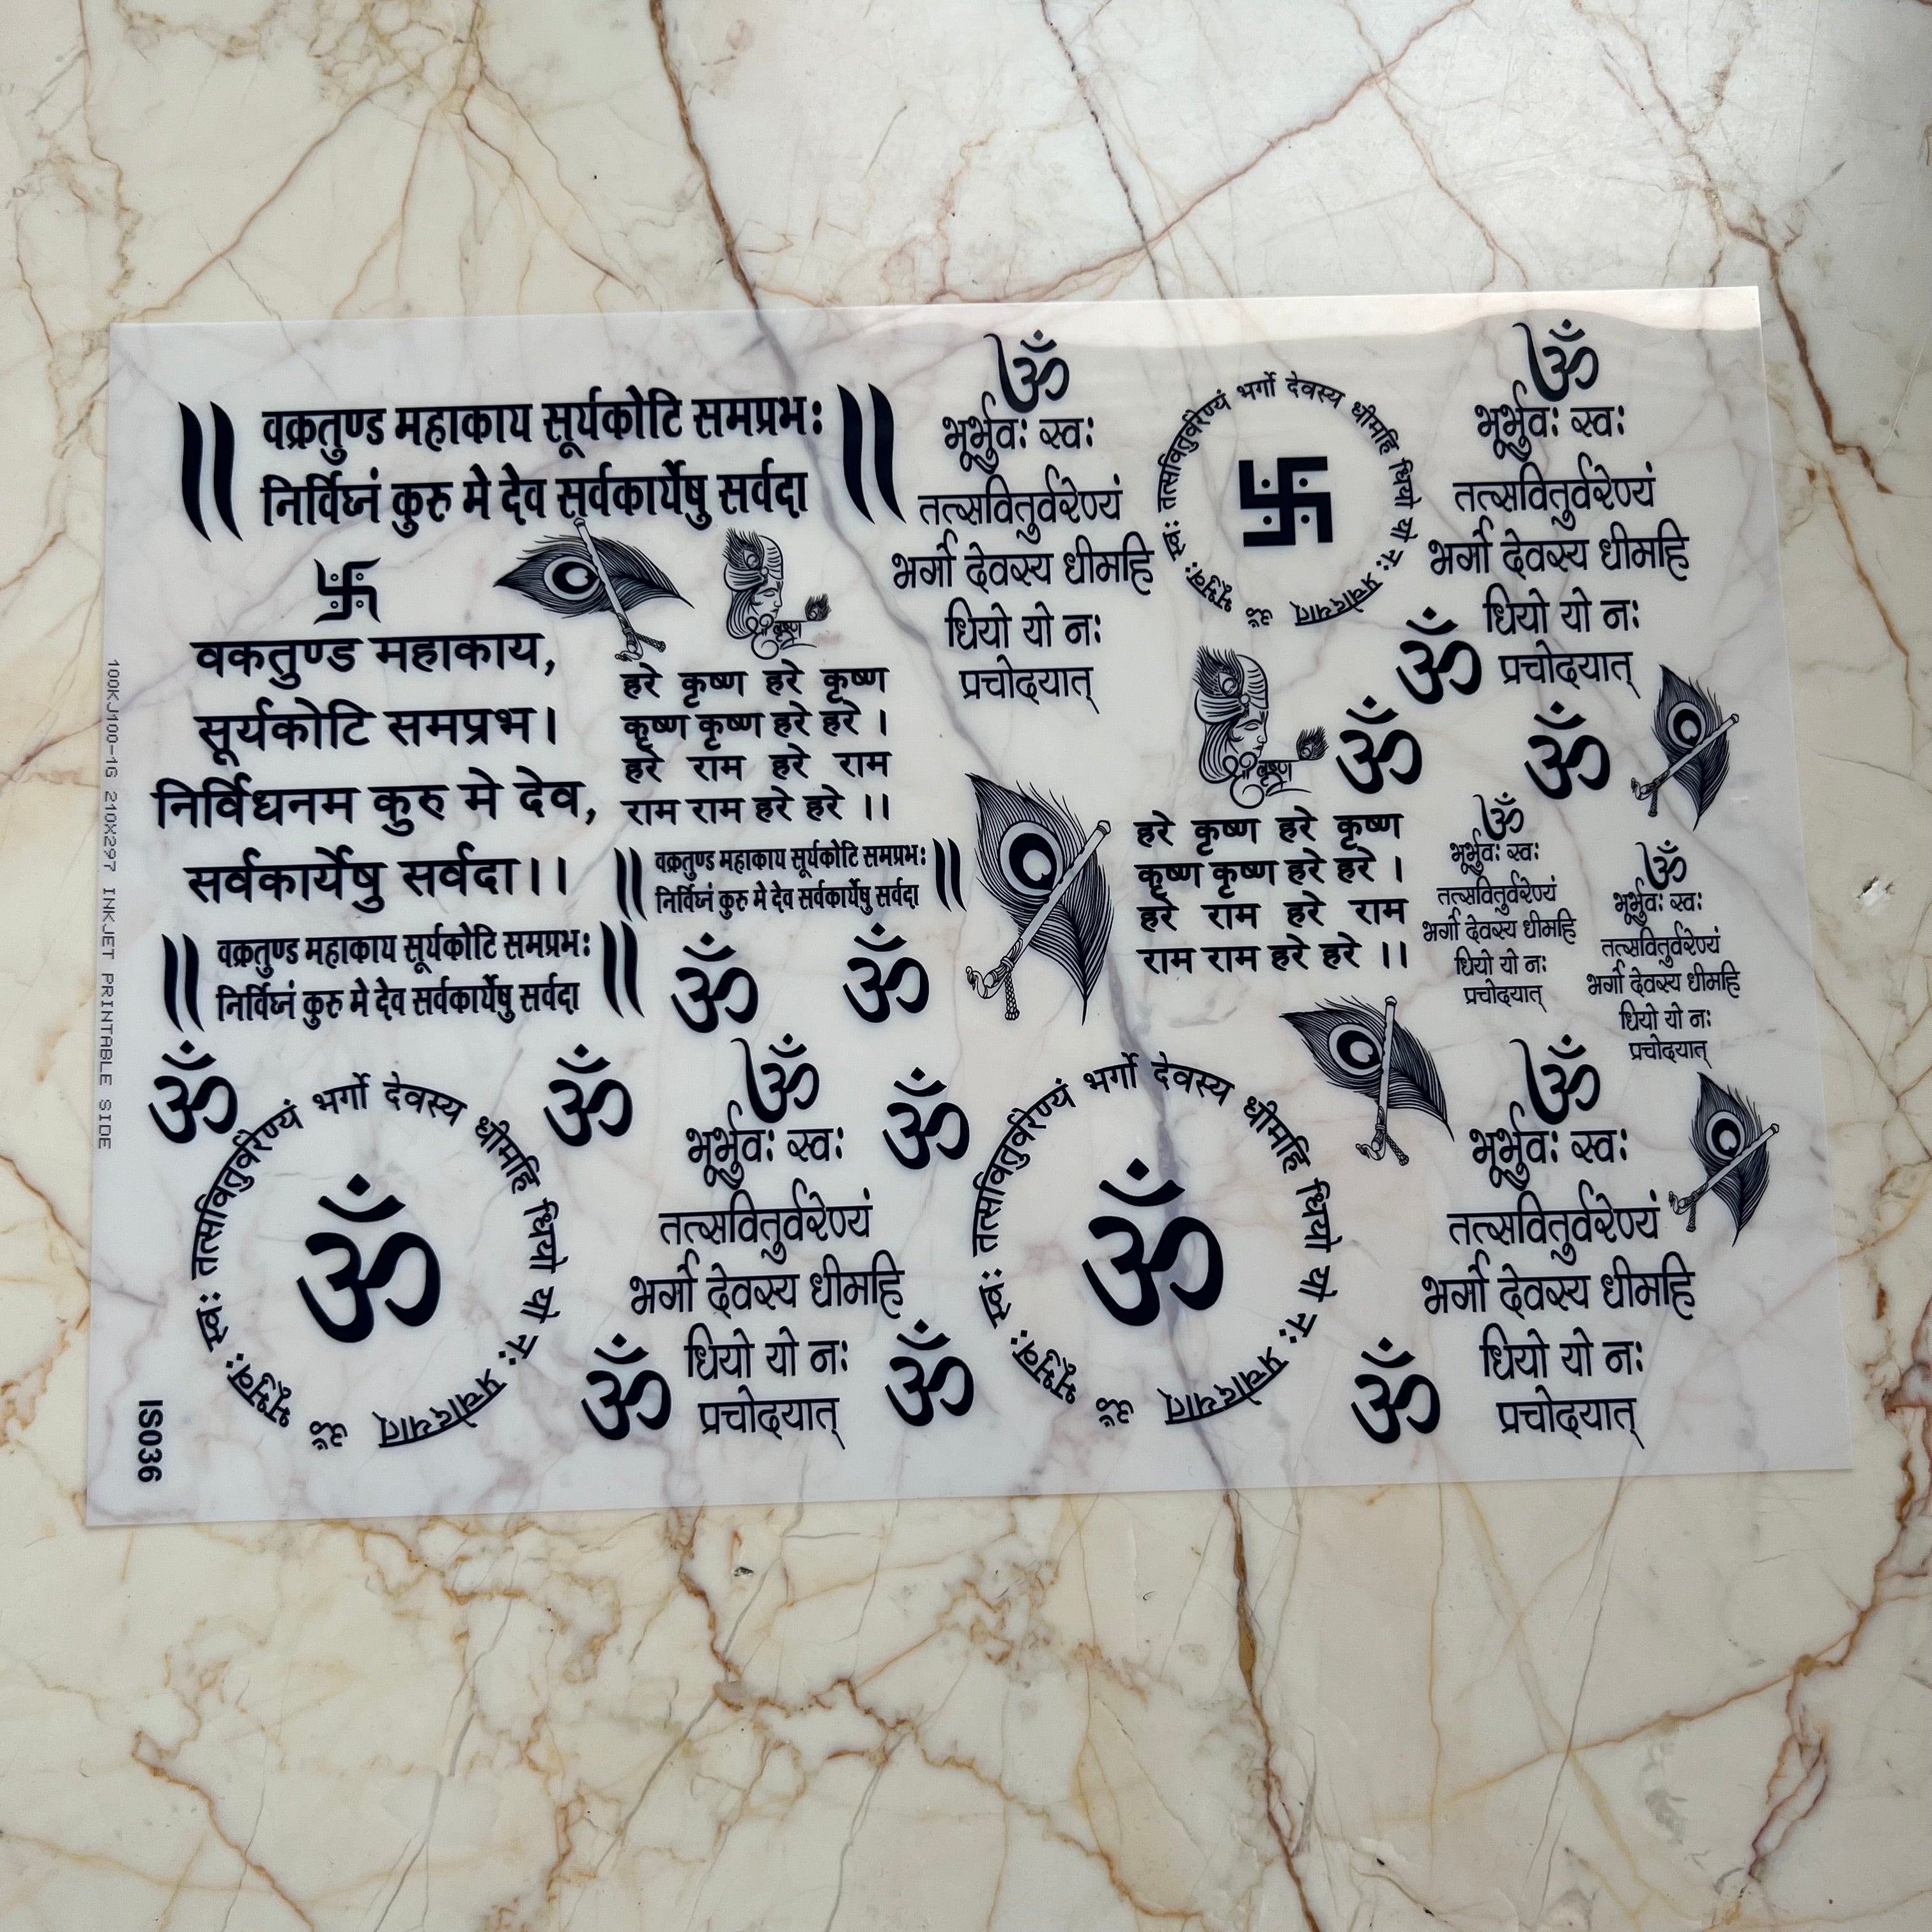 ।। वक्रतुण्ड महाकाय सूर्यकोटि समप्रभः ।।
निर्विघ्नं कुरु मे देव सर्वकार्येषु सर्वदा
वकतुण्ड महाकाय,
सूर्यकोटि समप्रभ।
निर्विधनम कुरु मे देव,
सर्वकार्येषु सर्वदा।।
श्री कृष्ण
हरे कृष्ण हरे कृष्ण
कृष्ण कृष्ण हरे हरे ।
हरे राम हरे राम
राम राम हरे हरे ।।
।। वक्रतुण्ड महाकाय सूर्यकोटि समप्रभः ।।
निर्विघ्नं कुरु मे देव सर्वकार्येषु सर्वदा
।। वक्रतुण्ड महाकाय सूर्यकोटि समप्रभः ।।
निर्विघ्नं कुरु मे देव सर्वकार्येषु सर्वदा
ॐ
ॐ
ॐ
भूर्भुवः स्वः
तत्सवितुर्वरेण्यं
भर्गो देवस्य धीमहि
धियो यो नः
प्रचोदयात्
ॐ भूर्भुवः स्वः तत्सवितुर्वरेण्यं भर्गो देवस्य धीमहि धियो यो नः प्रचोदयात्
ॐ
भूर्भुवः स्वः
तत्सवितुर्वरेण्यं
भर्गो देवस्य धीमहि
धियो यो नः
प्रचोदयात्
ॐ
ॐ
ॐ
श्री कृष्ण
हरे कृष्ण हरे कृष्ण
कृष्ण कृष्ण हरे हरे ।
हरे राम हरे राम
राम राम हरे हरे ।।
ॐ
भूर्भुवः स्वः
तत्सवितुर्वरेण्यं
भर्गो देवस्य धीमहि
धियो यो नः
प्रचोदयात्
ॐ
भूर्भुवः स्वः
तत्सवितुर्वरेण्यं
भर्गो देवस्य धीमहि
धियो यो नः
प्रचोदयात्
ॐ
ॐ
ॐ भूर्भुवः स्वः तत्सवितुर्वरेण्यं भर्गो देवस्य धीमहि धियो यो नः प्रचोदयात्
ॐ
ॐ
भूर्भुवः स्वः
तत्सवितुर्वरेण्यं
भर्गो देवस्य धीमहि
धियो यो नः
प्रचोदयात्
ॐ
ॐ
ॐ
ॐ भूर्भुवः स्वः तत्सवितुर्वरेण्यं भर्गो देवस्य धीमहि धियो यो नः प्रचोदयात्
ॐ
ॐ
ॐ
भूर्भुवः स्वः
तत्सवितुर्वरेण्यं
भर्गो देवस्य धीमहि
धियो यो नः
प्रचोदयात्
100KJ100-1G 210X297 INKJET PRINTABLE SIDE
IS036